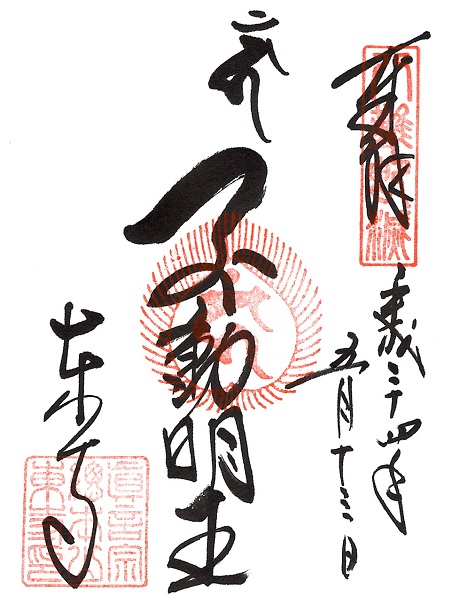 奉拝
平成二十四年
五月十三日
不動明王
東寺
真言宗
總本山